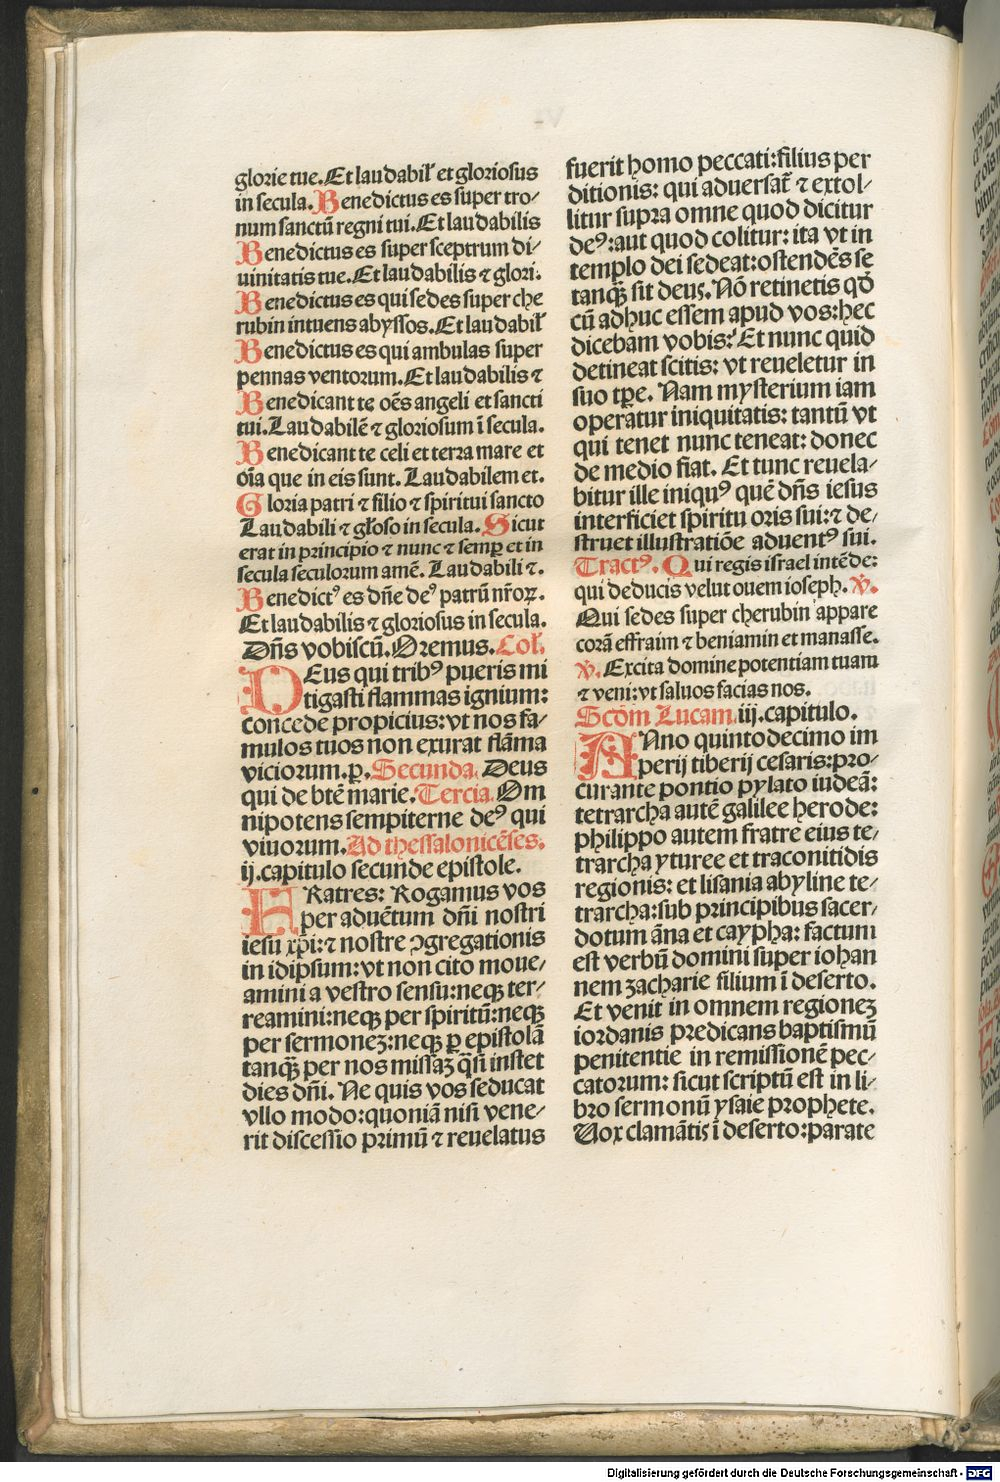 glorie tue. Et laudabilꝉ et gloriosus
in secula. Benedictus es super tro-
num sanctū regni tui. Et laudabilis
Benedictus es super sceptrum di-
uinitatis tue. Et laudabilis ⁊ glori.
Benedictus es qui sedes super che
rubin intuens abyssos. Et laudabiꝉ
Benedictus es qui ambulas super
pennas ventorum. Et laudabilis ⁊
Benedicant te oēs angeli et sancti
tui. Laudabilē ⁊ gloriosum ī secula.
Benedicant te celi et terra mare et
oīa que in eis sunt. Laudabilem et.
Gloria patri ⁊ filio ⁊ spiritui sancto
Laudabili ⁊ gꝉoso in secula. Sicut
erat in principio ⁊ nunc ⁊ semꝑ et in
secula seculorum amē. Laudabili ⁊.
Benedictꝰ es dn̄e deꝰ patrū nr̄oꝝ.
Et laudabilis ⁊ gloriosus in secula.
Dn̄s vobiscū. Oremus. Coꝉ.
DEus qui tribꝰ pueris mi
tigasti flammas ignium:
concede propicius: vt nos fa-
mulos tuos non exurat flāma
viciorum. ꝑ. Secunda. Deus
qui de btē marie. Tercia. Om
nipotens sempiterne deꝰ qui
viuorum. Ad thessalonicēses.
ij. capitulo secunde epistole.
FRatres: Rogamus vos
per aduētum dn̄i nostri
iesu xp̄i: ⁊ nostre ꝯgregationis
in idipsum: vt non cito moue-
amini a vestro sensu: neqꝫ ter-
reamini: neqꝫ per spiritū: neqꝫ
per sermoneꝫ: neqꝫ ꝑ epistolā
tanqꝫ per nos missaꝫ q̄si instet
dies dn̄i. Ne quis vos seducat
vllo modo: quoniā nisi vene-
rit discessio primū ⁊ reuelatus
fuerit homo peccati: filius per
ditionis: qui aduersat᷑ ⁊ extol-
litur supra omne quod dicitur
deꝰ: aut quod colitur: ita vt in
templo dei sedeat: ostendēs se
tanqꝫ sit deus. Nō retinetis qd̄
cū adhuc essem apud vos: hec
dicebam vobis: Et nunc quid
detineat scitis: vt reueletur in
suo tꝑe. Nam mysterium iam
operatur iniquitatis: tantū vt
qui tenet nunc teneat: donec
de medio fiat. Et tunc reuela-
bitur ille iniquꝰ quē dn̄s iesus
interficiet spiritu oris sui: ⁊ de-
struet illustratiōe aduentꝰ sui.
Tractꝰ. Qui regis israel intēde:
qui deducis velut ouem ioseph. ℣.
Qui sedes super cherubin appare
corā effraim ⁊ beniamin et manasse.
℣. Excita domine potentiam tuam
⁊ veni: vt saluos facias nos.
Scd̄m Lucam. iij. capitulo.
ANno quintodecimo im
perij tiberij cesaris: pro-
curante pontio pylato iudeā:
tetrarcha autē galilee herode:
philippo autem fratre eius te-
trarcha yturee et traconitidis
regionis: et lisania abyline te-
trarcha: sub principibus sacer-
dotum āna et caypha: factum
est verbū domini super iohan
nem zacharie filium ī deserto.
Et venit in omnem regioneꝫ
iordanis predicans baptismū
penitentie in remissionē pec-
catorum: sicut scriptū est in li-
bro sermonū ysaie prophete.
Uox clamātis ī deserto: parate
Digitalisierung gefördert durch die Deutsche Forschungsgemeinschaft - DFG